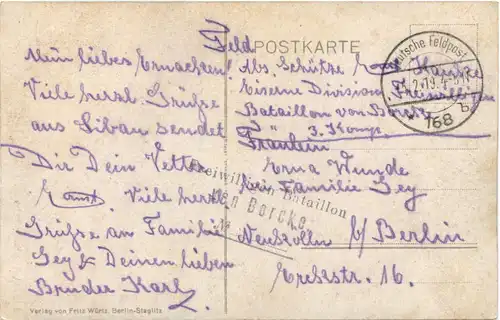 Feld POSTKARTE
Mein liebes Ernachen!
Viele herzl. Grüße
aus Libau sendet
Dir Dein Vetter
Ernst Viele herzl
Grüße an Familie
Gey & Deinen lieben
Bruder Karl
Verlag von Fritz Würtz, Berlin-Steglitz.
Abs. Schütze Ernst
Eiserne Division
Bataillon von Borcke
3. Komp.
Fräulein
Erna Wunde
bei Familie Gey
Neukölln b/ Berlin
Erkstr. 16.
Deutsche Feldpost
168
b
Freiwilligen Bataillon
von Borcke